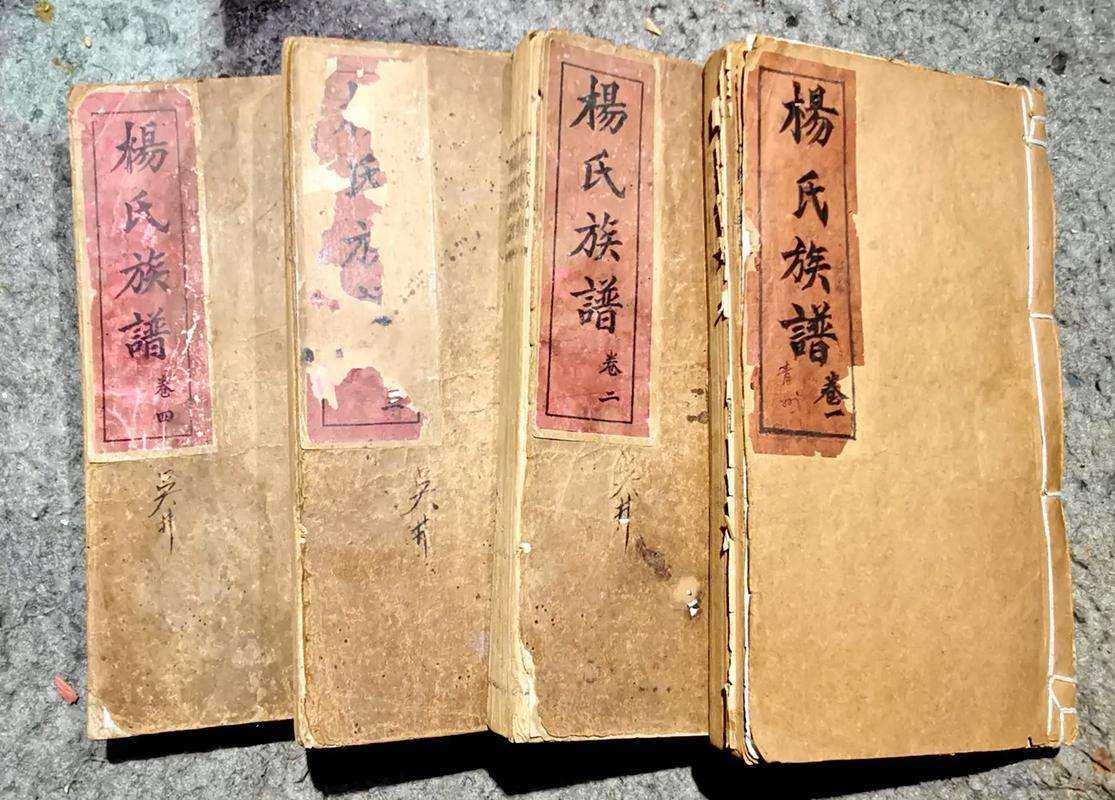 楊氏族譜
卷一
楊氏族譜
卷二
吳井
氏族
三
吳井
楊氏族譜
卷四
吳井